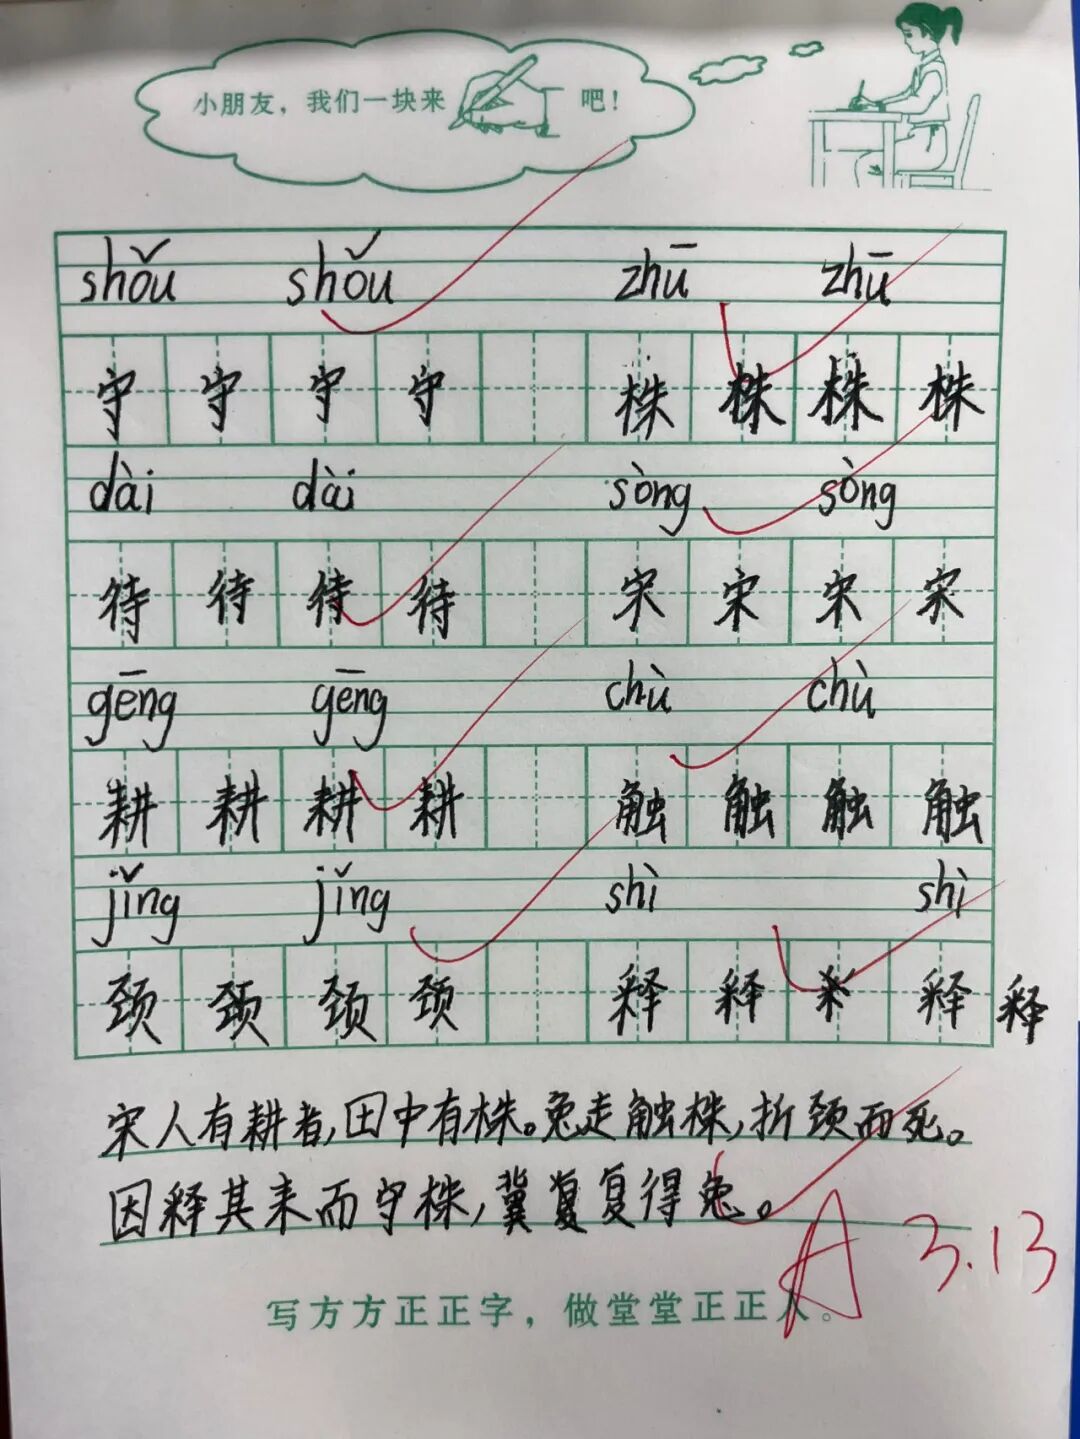 小朋友，我们一块来 吧！
shǒu shǒu zhū zhū
守 守 守 守 株 株 株 株
dài dài sòng sòng
待 待 待 待 宋 宋 宋 宋
gēng gēng chù chù
耕 耕 耕 耕 触 触 触 触
jǐng jǐng shì shì
颈 颈 颈 颈 释 释 释 释
宋人有耕者，田中有株。兔走触株，折颈而死。
因释其耒而守株，冀复复得兔。
A 3.13
写方方正正字，做堂堂正正人。